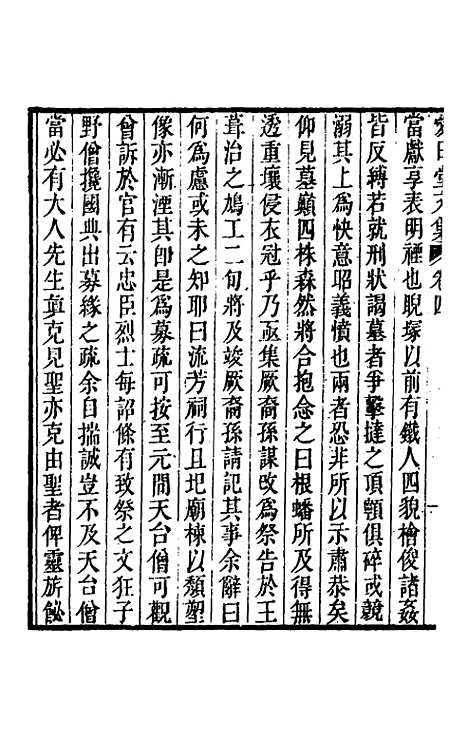 愛日堂文集 卷四
當獻享表明禋也睨塚以前有鐵人四貌檜俊諸姦
皆反縛若就刑狀謁墓者爭擊撻之項顊俱碎或競
溺其上爲快意昭義憤也兩者恐非所以示肅恭矣
仰見墓巔四株森然將合抱念之曰根蟠所及得無
透重壤侵衣冠乎乃亟集厥裔孫謀改爲祭告於王
葺治之鳩工二旬將及竣厥裔孫請記其事余辭曰
何爲慮或未之知耶曰流芳祠行且圮廟棟以頽塑
像亦漸湮其卽是爲募疏可按至元間天台僧可觀
曾訴於官有云忠臣烈士每詔條有致祭之文狂子
野僧攙國典出募緣之疏余自揣誠豈不及天台僧
當必有大人先生㝠克見聖亦克由聖者俾靈旂飶